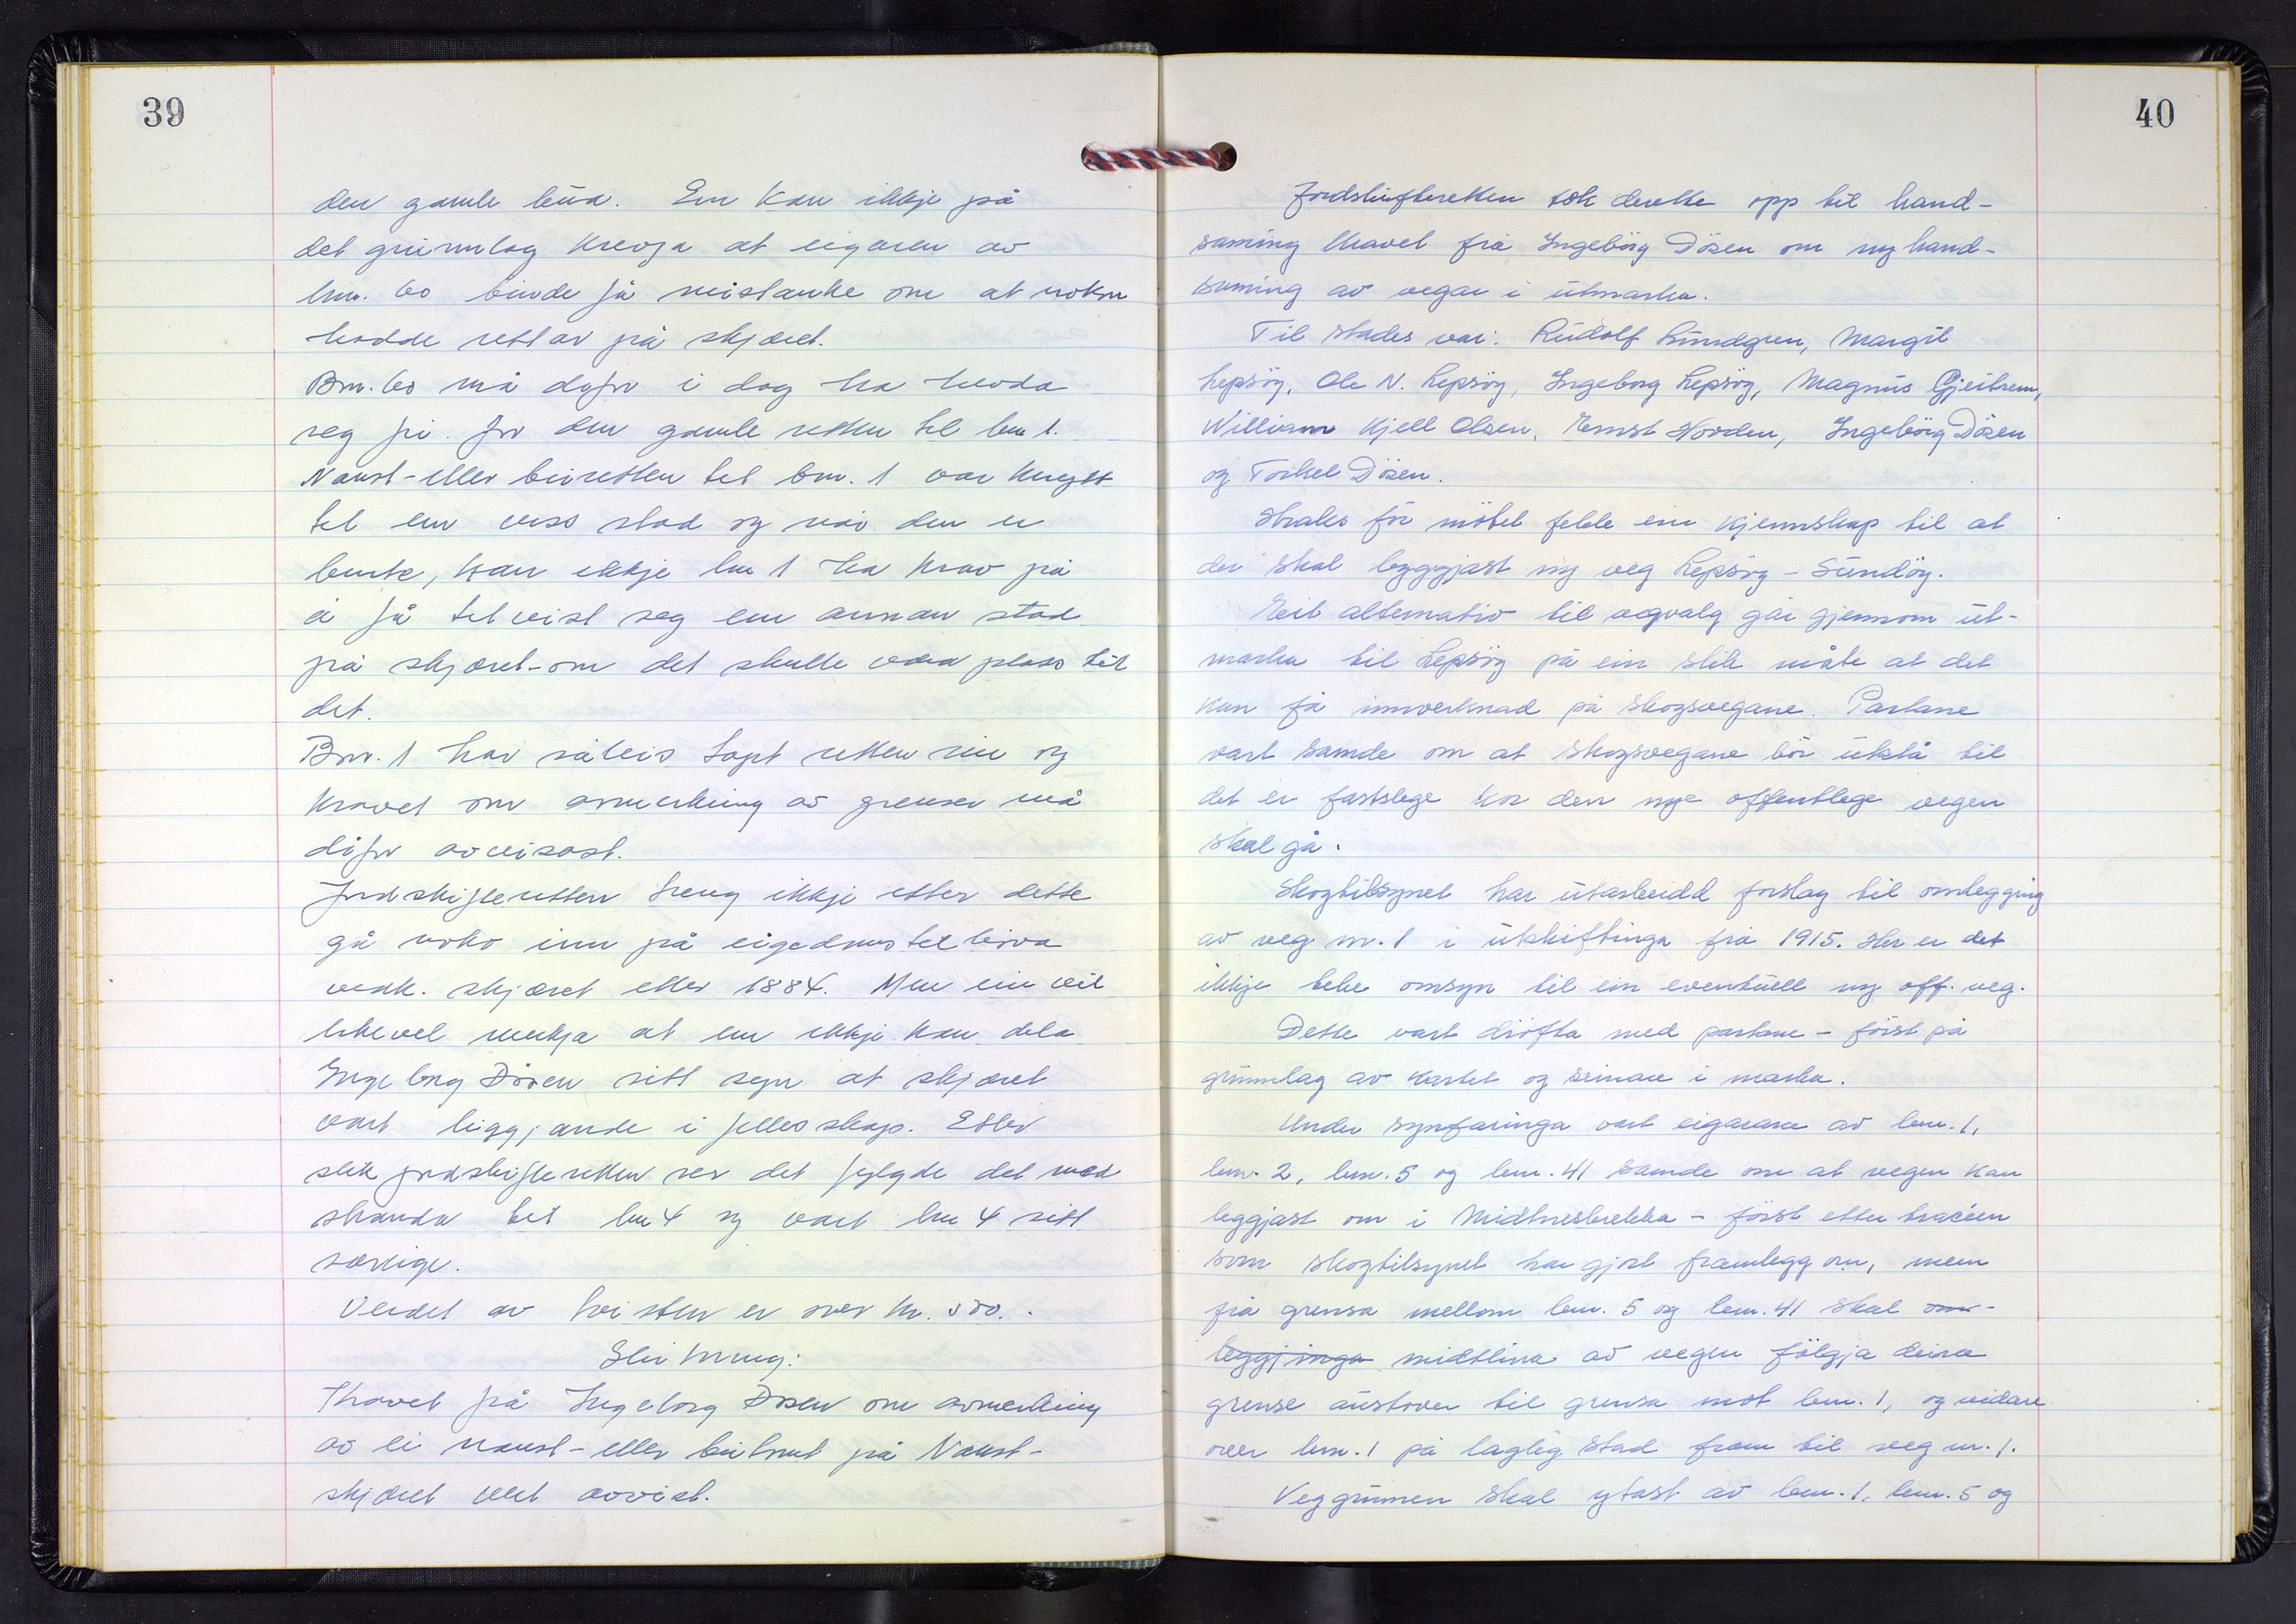 39
den gamle bua. Ein kan ikkje på
det grunnlag krevja at eigaren av
bnr. 60 burde få mistanke om at nokon
hadde rettar på skjæret.
Bnr. 60 må difor i dag ha hevda
seg fri for den gamle retten til bnr 1.
Naust- eller buretten til bnr. 1 var knytt
til ein viss stad og når den er
burte, kan ikkje bnr 1 ha krav på
å få tilvist seg ein annan stad
på skjæret - om det skulle vera plass til
det.
Bnr. 1 har såleis tapt retten sin og
kravet om avmerking av grenser må
difor avvisast.
Jordskifteretten treng ikkje etter dette
gå noko inn på eigedomstilhøva
vedk. skjæret etter 1884. Men ein vil
likevel merkja at ein ikkje kan dela
Ingeborg Døsen sitt syn at skjæret
vart liggjande i fellesskap. Etter
slik jordskifteretten ser det fylgde det med
stranda til bnr 4 og vart bnr 4 sitt
særeige.
Verdet av tvisten er over kr. 500.-
Slutning:
Kravet frå Ingeborg Døsen om avmerking
av ei naust- eller butomt på Naust-
skjæret vert avvist.
40
Jordskifteretten tok deretter opp til hand-
saming kravet frå Ingebörg Dösen om ny hand-
saming av vegar i utmarka.
Til stades var: Rudolf Lundgren, Margit
Lepsöy, Ole N. Lepsöy, Ingeborg Lepsöy, Magnus Gjeitrem,
William Kjell Olsen, Ernst Hovden, Ingebörg Dösen
og Torkel Dösen.
Straks för mötet fekk ein kjennskap til at
det skal byggjast ny veg Lepsöy - Sundöy.
Eit alternativ til vegvalg går gjennom ut-
marka til Lepsöy på ein slik måte at det
kan få innverknad på skogsvegane. Partane
vart samde om at skogsvegane bör utstå til
det er fastslege kor den nye offentlege vegen
skal gå.
Skogtilsynet har utarbeidd forslag til omlegging
av veg nr. 1 i utskiftinga frå 1915. Her er det
ikkje teke omsyn til ein eventuell ny off. veg.
Dette vart dröfta med partane - först på
grunnlag av kartet og seinare i marka.
Under synfaringa vart eigarane av bnr. 1,
bnr. 2, bnr. 5 og bnr. 41 samde om at vegen kan
leggjast om i Midtnesbrekka - först etter tracéen
som skogtilsynet har gjort framlegg om, men
frå grensa mellom bnr. 5 og bnr. 41 skal om-
leggjinga midtlina av vegen fölgja deira
grense austover til grensa mot bnr. 1, og vidare
over bnr. 1 på lagleg stad fram til veg nr. 1.
Veggrunnen skal ytast av bnr. 1, bnr. 5 og